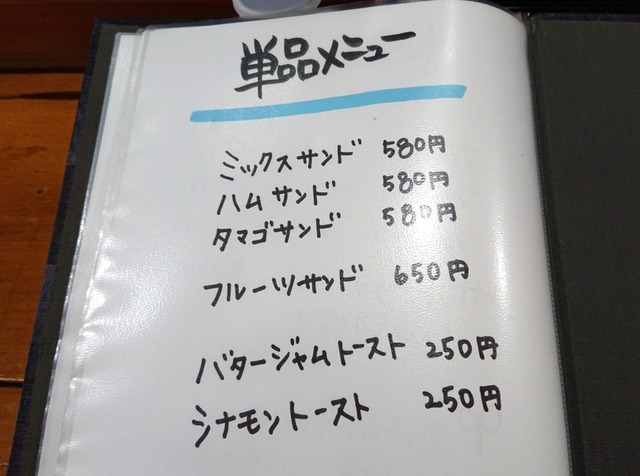 単品メニュー
ミックスサンド 580円
ハムサンド 580円
タマゴサンド 580円
フルーツサンド 650円
バタージャムトースト 250円
シナモントースト 250円